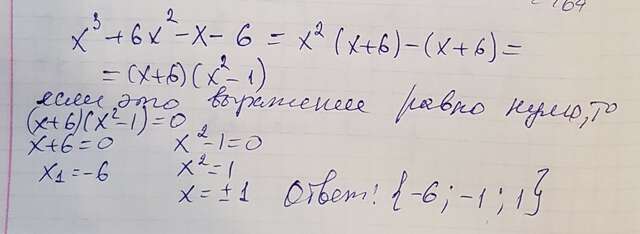 164
x³+6x²-x-6 = x²(x+6)-(x+6)=
=(x+6)(x²-1)
если это выражение равно нулю, то
(x+6)(x²-1)=0
x+6=0 x²-1=0
x₁=-6 x²=1
x=±1 Ответ: {-6; -1; 1}